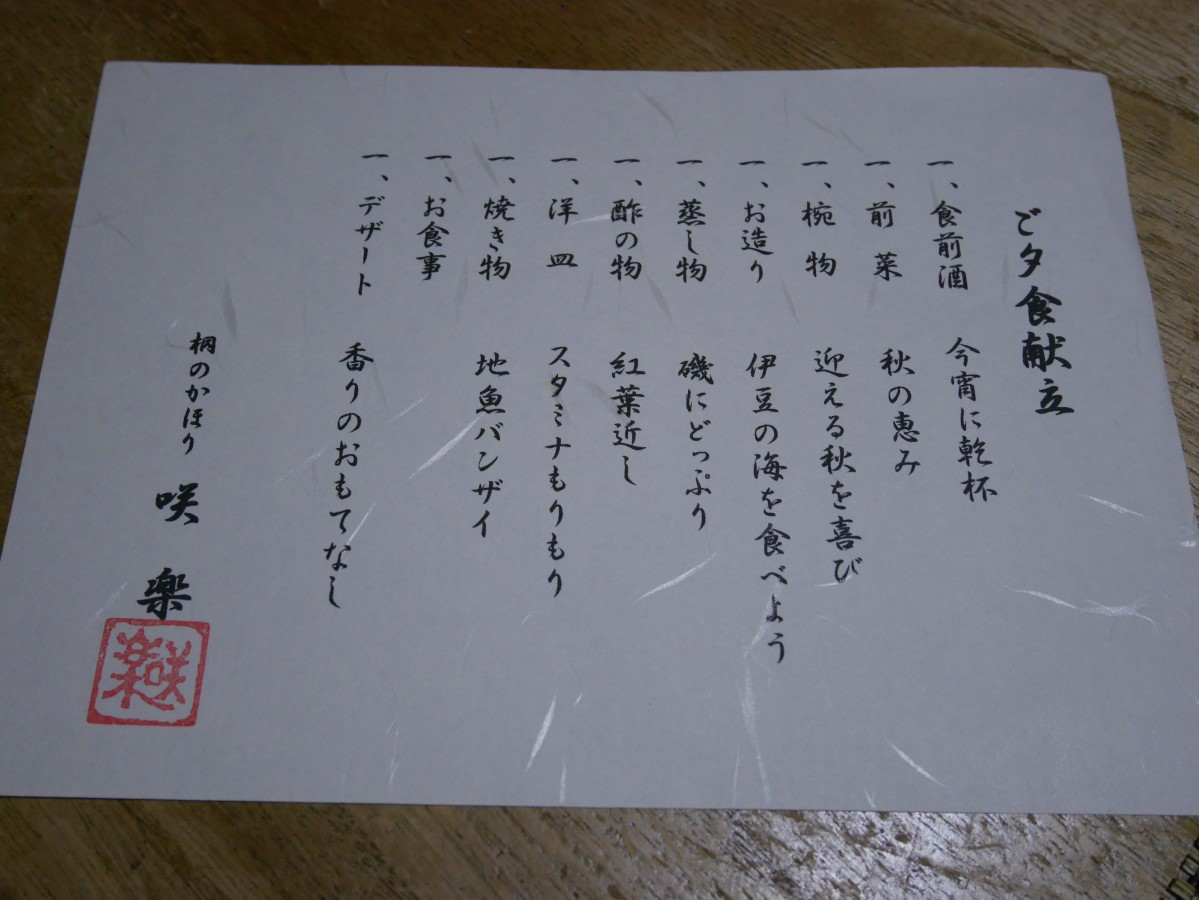 ご夕食献立
一、食前酒　今宵に乾杯
一、前菜　秋の恵み
一、椀物　迎える秋を喜び
一、お造り　伊豆の海を食べよう
一、蒸し物　磯にどっぷり
一、酢の物　紅葉近し
一、洋皿　スタミナもりもり
一、焼き物　地魚バンザイ
一、お食事
一、デザート　香りのおもてなし
桐のかほり　咲楽
咲楽